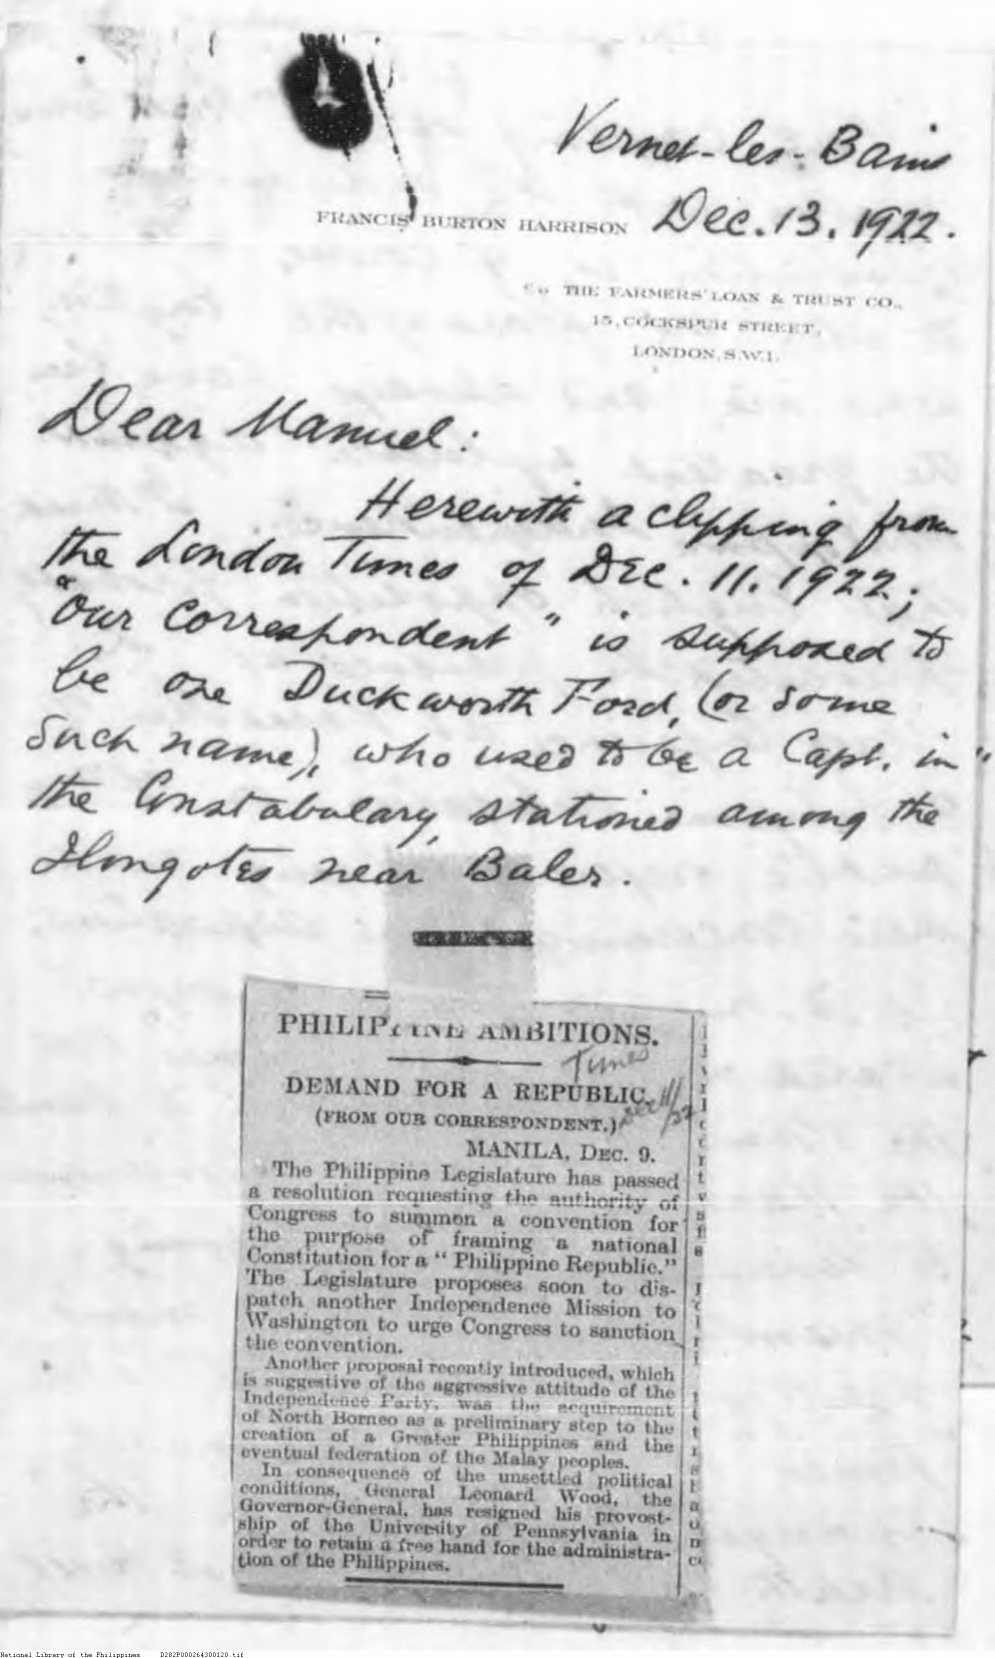 Vernet-les-Bains
FRANCIS BURTON HARRISON Dec. 13. 1922.
C/o THE FARMERS' LOAN & TRUST CO.,
15, COCKSPUR STREET,
LONDON, S.W.1.
Dear Manuel:
Herewith a clipping from
the London Times of Dec. 11. 1922;
"Our correspondent" is supposed to
be one Duckworth Ford, (or some
such name), who used to be a Capt. in
the Constabulary, stationed among the
Ilongotes near Baler.
PHILIPPINE AMBITIONS.
Times
DEMAND FOR A REPUBLIC.
Dec 11/22
(FROM OUR CORRESPONDENT.)
MANILA, DEC. 9.
The Philippine Legislature has passed
a resolution requesting the authority of
Congress to summon a convention for
the purpose of framing a national
Constitution for a "Philippine Republic."
The Legislature proposes soon to dis-
patch another Independence Mission to
Washington to urge Congress to sanction
the convention.
Another proposal recently introduced, which
is suggestive of the aggressive attitude of the
Independence Party, was the acquirement
of North Borneo as a preliminary step to the
creation of a Greater Philippines and the
eventual federation of the Malay peoples.
In consequence of the unsettled political
conditions, General Leonard Wood, the
Governor-General, has resigned his provost-
ship of the University of Pennsylvania in
order to retain a free hand for the administra-
tion of the Philippines.
National Library of the Philippines D282P000264300120.tif